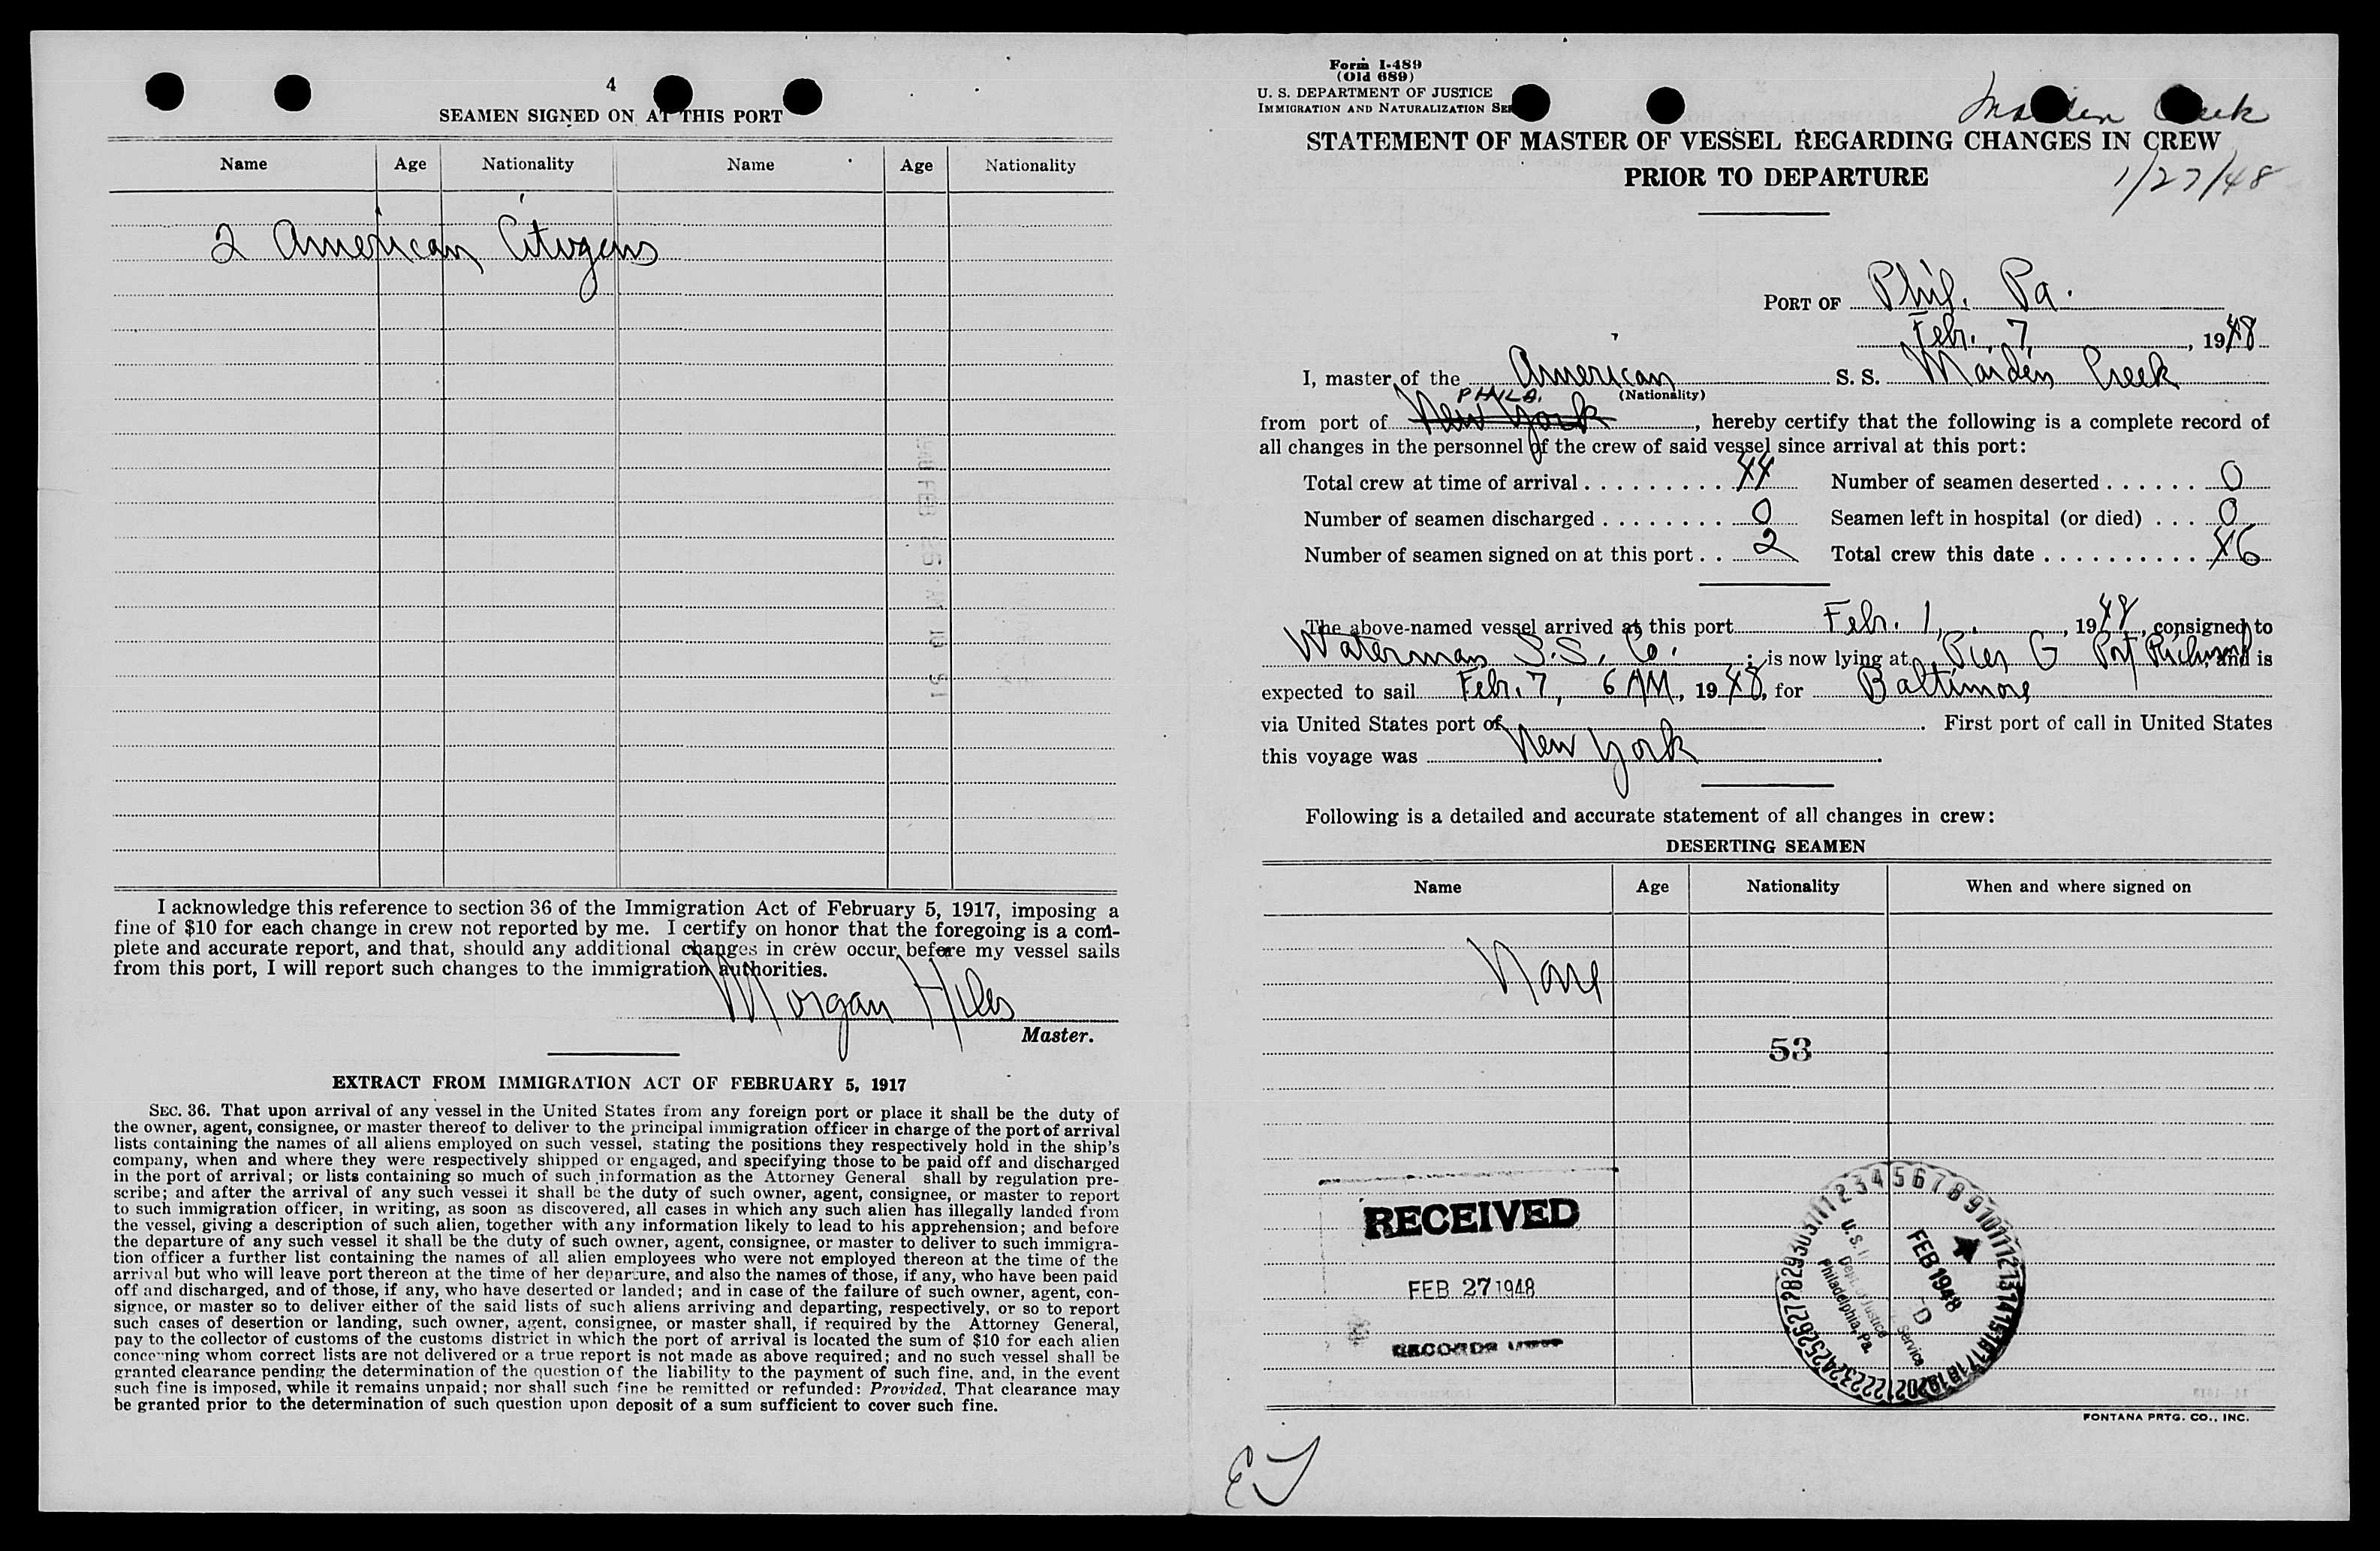 4
SEAMEN SIGNED ON AT THIS PORT
Name Age Nationality Name Age Nationality
2 American Citizens
I acknowledge this reference to section 36 of the Immigration Act of February 5, 1917, imposing a
fine of $10 for each change in crew not reported by me. I certify on honor that the foregoing is a com-
plete and accurate report, and that, should any additional changes in crew occur before my vessel sails
from this port, I will report such changes to the immigration authorities.
Morgan Hiles
Master.
EXTRACT FROM IMMIGRATION ACT OF FEBRUARY 5, 1917
SEC. 36. That upon arrival of any vessel in the United States from any foreign port or place it shall be the duty of
the owner, agent, consignee, or master thereof to deliver to the principal immigration officer in charge of the port of arrival
lists containing the names of all aliens employed on such vessel, stating the positions they respectively hold in the ship's
company, when and where they were respectively shipped or engaged, and specifying those to be paid off and discharged
in the port of arrival; or lists containing so much of such information as the Attorney General shall by regulation pre-
scribe; and after the arrival of any such vessel it shall be the duty of such owner, agent, consignee, or master to report
to such immigration officer, in writing, as soon as discovered, all cases in which any such alien has illegally landed from
the vessel, giving a description of such alien, together with any information likely to lead to his apprehension; and before
the departure of any such vessel it shall be the duty of such owner, agent, consignee, or master to deliver to such immigra-
tion officer a further list containing the names of all alien employees who were not employed thereon at the time of the
arrival but who will leave port thereon at the time of her departure, and also the names of those, if any, who have been paid
off and discharged, and of those, if any, who have deserted or landed; and in case of the failure of such owner, agent, con-
signee, or master so to deliver either of the said lists of such aliens arriving and departing, respectively, or so to report
such cases of desertion or landing, such owner, agent, consignee, or master shall, if required by the Attorney General,
pay to the collector of customs of the customs district in which the port of arrival is located the sum of $10 for each alien
concerning whom correct lists are not delivered or a true report is not made as above required; and no such vessel shall be
granted clearance pending the determination of the question of the liability to the payment of such fine, and, in the event
such fine is imposed, while it remains unpaid; nor shall such fine be remitted or refunded: Provided, That clearance may
be granted prior to the determination of such question upon deposit of a sum sufficient to cover such fine.
Form I-489
(Old 689)
U. S. DEPARTMENT OF JUSTICE
IMMIGRATION AND NATURALIZATION SER
Maiden Creek
STATEMENT OF MASTER OF VESSEL REGARDING CHANGES IN CREW
PRIOR TO DEPARTURE
1/27/48
PORT OF Phil. Pa.
Febr. 7, 1948
I, master of the American S. S. Maiden Creek
PHILA. (Nationality)
from port of New York, hereby certify that the following is a complete record of
all changes in the personnel of the crew of said vessel since arrival at this port:
Total crew at time of arrival . . . . . . . . . . 44 Number of seamen deserted . . . . . . 0
Number of seamen discharged . . . . . . . . 0 Seamen left in hospital (or died) . . . 0
Number of seamen signed on at this port . . 2 Total crew this date . . . . . . . . . . 46
The above-named vessel arrived at this port Febr. 1, 1948, consigned to
Waterman S.S. Co. ; is now lying at Pier G Port Richmond, and is
expected to sail Febr. 7, 6 AM, 1948, for Baltimore
via United States port of . First port of call in United States
this voyage was New York.
Following is a detailed and accurate statement of all changes in crew:
DESERTING SEAMEN
Name Age Nationality When and where signed on
None
53
RECEIVED
FEB 27 1948
RECORDS
FEB 1948
D
U. S. I
Dept. of Justice
Service
Philadelphia, Pa.
FONTANA PRTG. CO., INC.